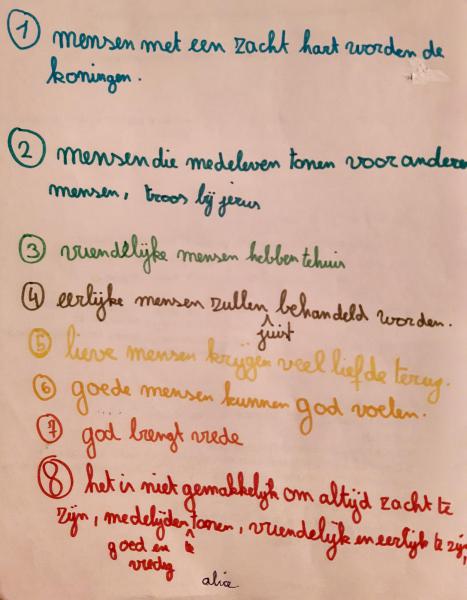 1 mensen met een zacht hart worden de
koningen.
2 mensen die medeleven tonen voor anderen
mensen, troos bij jezus
3 vriendelijke mensen hebben tehuis
4 eerlijke mensen zullen behandeld worden.
juist
5 lieve mensen krijgen veel liefde terug.
6 goede mensen kunnen god voelen.
7 god brengt vrede
8 het is niet gemakkelijk om altijd zacht te
zijn, medelijden tonen, vriendelijk en eerlijk te zijn,
goed en
vredig